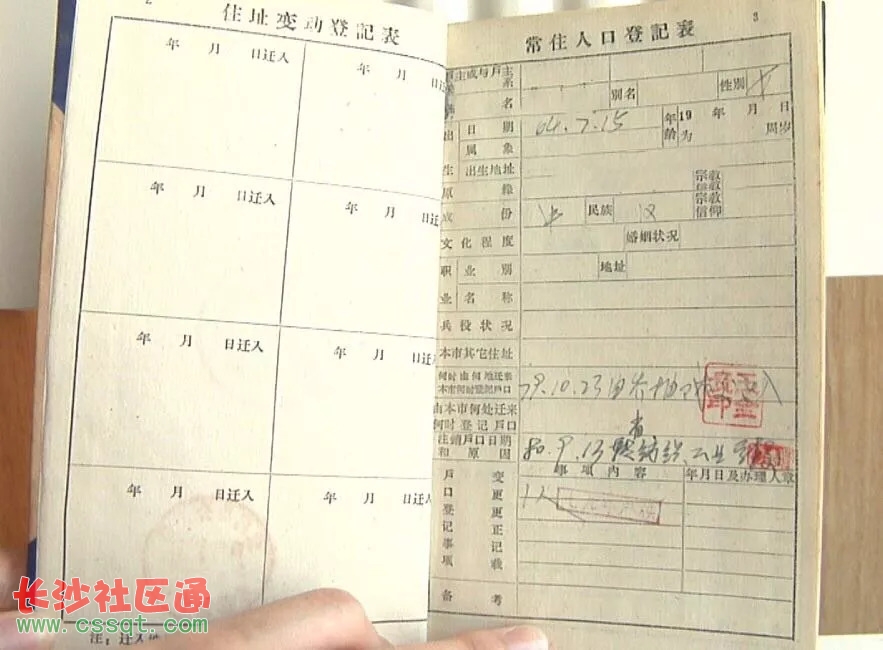 2
住址变动登記表
年 月 日迁入
年 月 日迁入
年 月 日迁入
年 月 日迁入
年 月 日迁入
年 月 日迁入
年 月 日迁入
年 月 日迁入
注：迁入
3
常住人口登記表
戶主或与戶主
关系
姓名 别名 性别 女
出生 日期 64.7.15 年龄 19 年 月 日
为 周岁
属象
出生地址 宗教
原 宗教信仰
成份 民族 汉
文化程度 婚姻状况
职业 业别 地址
名称
兵役状况
本市其它住址
何时由何地迁来
本市何时登記戶口 79.10.23由
由本市何处迁来
何时登記戶口
注銷戶口日期
和原因 80.9.13 省纺织工业
戶口登記事項 变更更正記载 事項内容 年月日及办理人章
备考
长沙社区通
www.cssqt.com